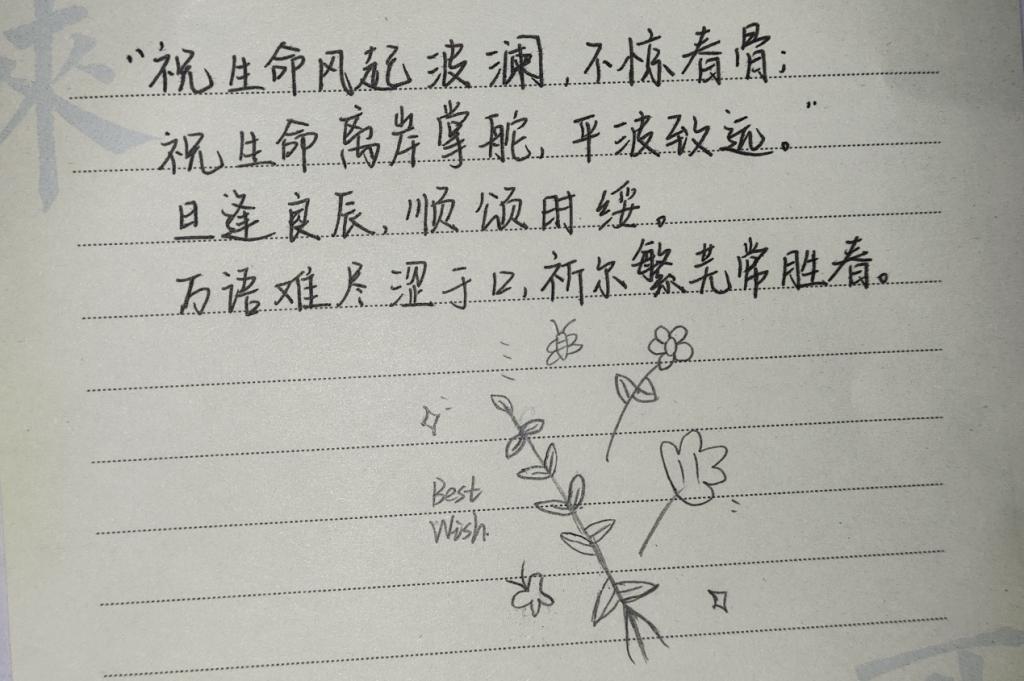 來
“祝生命风起波澜,不惊春骨;
祝生命离岸掌舵,平波致远。”
旦逢良辰,顺颂时绥。
万语难尽涩于口,祈尔繁芜常胜春。
Best
Wish.